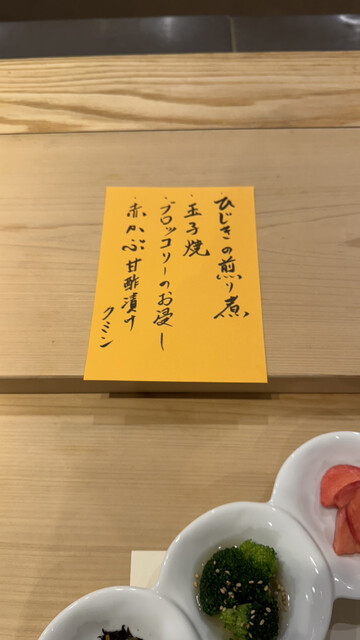 ・ひじきの煎り煮
・玉子焼
・ブロッコリーのお浸し
・赤かぶ甘酢漬け
クミン